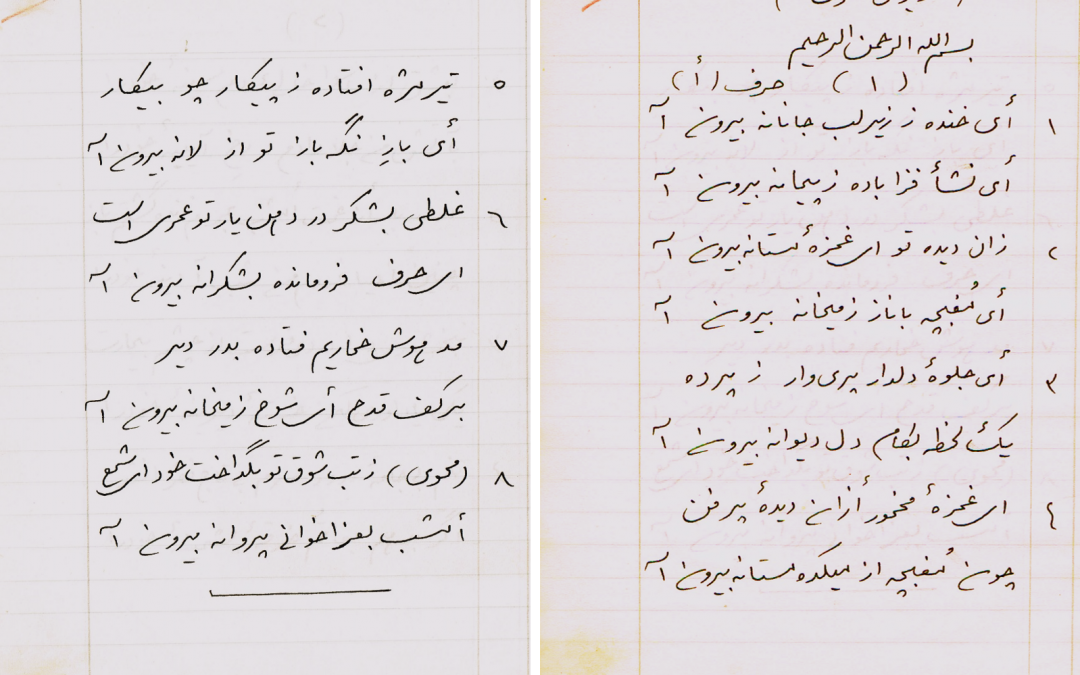 بسم الله الرحمن الرحیم
(١) حرف (أ)
١ أی خنده ز زیر لب جانانه بیرون آ
أی نشأ فزا باده ز پیمانه بیرون آ
٢ زان دیده تو ای غمزهٔ مستانه بیرون آ
أی مُغبچه با ناز ز میخانه بیرون آ
٣ أی جلوهٔ دلدار پری وار ز پرده
یک لحظه بکام دل دیوانه بیرون آ
٤ ای غمزهٔ مخمور أزان دیدهٔ پر فن
چون مُغبچه از میکده مستانه بیرون آ
٥ تیر مژه افتاده ز پیکار چو بیکار
أی باز نگه باز تو از لانه بیرون آ
٦ غلطی بشکر در دهن یار تو عمری است
ای حرف فرومانده بشکرانه بیرون آ
٧ مدهوش خماریم فتاده بدر دیر
بر کف قدح أی شوخ ز میخانه بیرون آ
٨ (محوی) ز تب شوق تو بگداخت خود ای شمع
أمشب بعزاخوانی پروانه بیرون آ